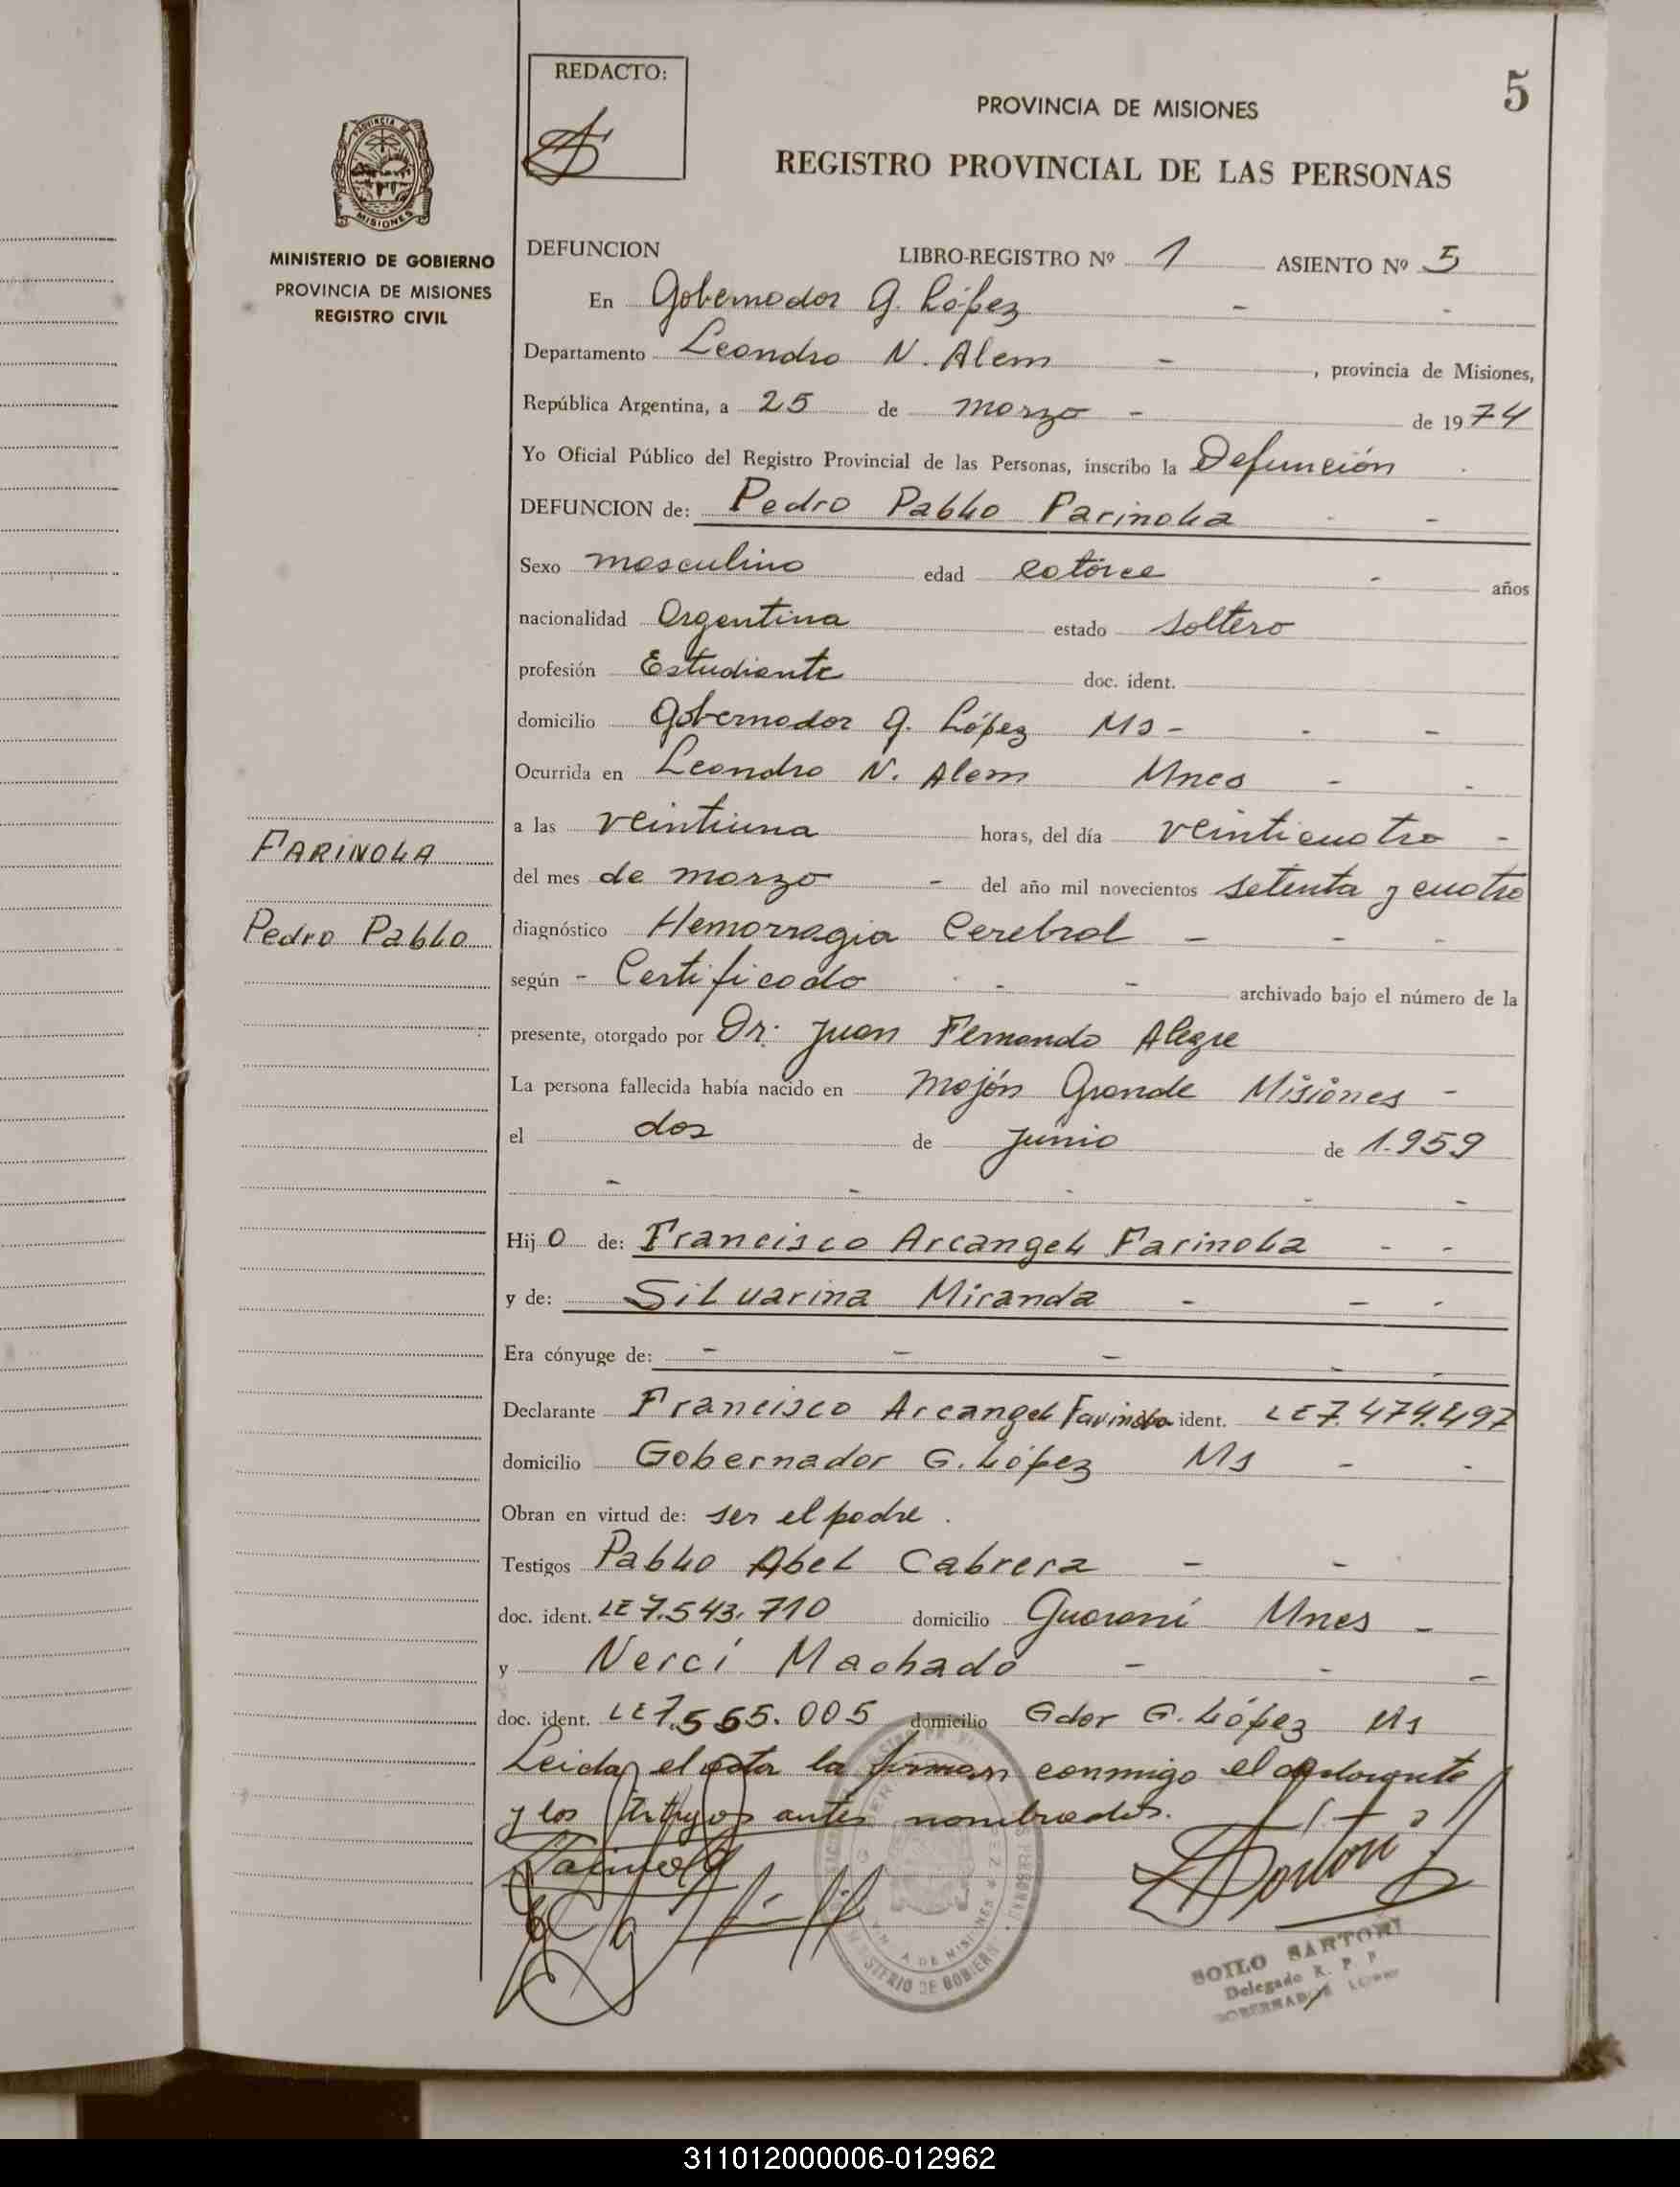 REDACTO:
5
PROVINCIA DE MISIONES
REGISTRO PROVINCIAL DE LAS PERSONAS
PROVINCIA DE
MISIONES
MINISTERIO DE GOBIERNO
PROVINCIA DE MISIONES
REGISTRO CIVIL
DEFUNCION LIBRO-REGISTRO Nº 1 ASIENTO Nº 5
En Gobernador G. López - -
Departamento Leandro N. Alem - , provincia de Misiones,
República Argentina, a 25 de marzo - de 1974
Yo Oficial Público del Registro Provincial de las Personas, inscribo la Defunción
DEFUNCION de: Pedro Pablo Farinola - -
Sexo masculino edad catorce - años
nacionalidad Argentina estado soltero
profesión Estudiante doc. ident.
domicilio Gobernador G. López Ms - - -
Ocurrida en Leandro N. Alem Mnes - -
a las veintiuna horas, del día veinticuatro -
del mes de marzo - del año mil novecientos setenta y cuatro
FARINOLA
Pedro Pablo
diagnóstico Hemorragia Cerebral - - -
según - Certificado - - archivado bajo el número de la
presente, otorgado por Dr. Juan Fernando Alegre
La persona fallecida había nacido en Mojón Grande Misiones -
el dos de junio de 1.959
- - - - -
Hijo de: Francisco Arcangel Farinola - -
y de: Siluarina Miranda - - -
Era cónyuge de: - - - - -
Declarante Francisco Arcangel Farinola ident. LE 7.474.497
domicilio Gobernador G. López Ms - -
Obran en virtud de: ser el padre .
Testigos Pablo Abel Cabrera - -
doc. ident. LE 7.543.710 domicilio Guaraní Mnes -
y Nerci Machado - - -
doc. ident. LE 7.565.005 domicilio Gdor G. López Ms
Leida el acta la firman conmigo el declarante
y los testigos antes nombrados.
Farinola
Sartori
MINISTERIO DE GOBIERNO
SOILO SARTORI
Delegado R. P. P.
GOBERNADOR LOPEZ
311012000006-012962